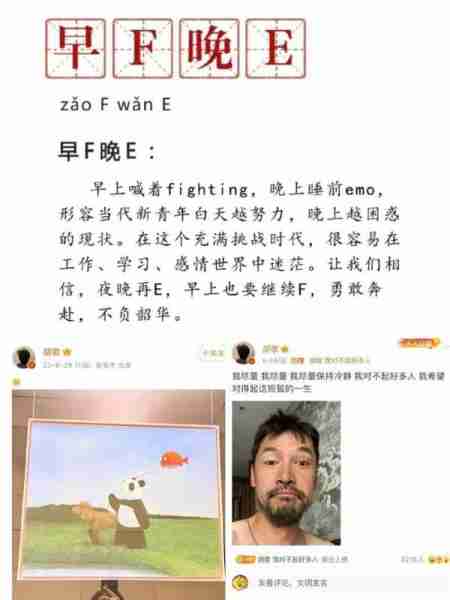 早F晚E
zǎo F wǎn E
早F晚E：
早上喊着fighting，晚上睡前emo，
形容当代新青年白天越努力，晚上越困惑
的现状。在这个充满挑战时代，很容易在
工作、学习、感情世界中迷茫。让我们相
信，夜晚再E，早上也要继续F，勇敢奔
赴，不负韶华。
我尽量 我尽量 我尽量保持冷静 我对不起好多人 我希望
对得起这短暂的一生
发条评论，文明发言